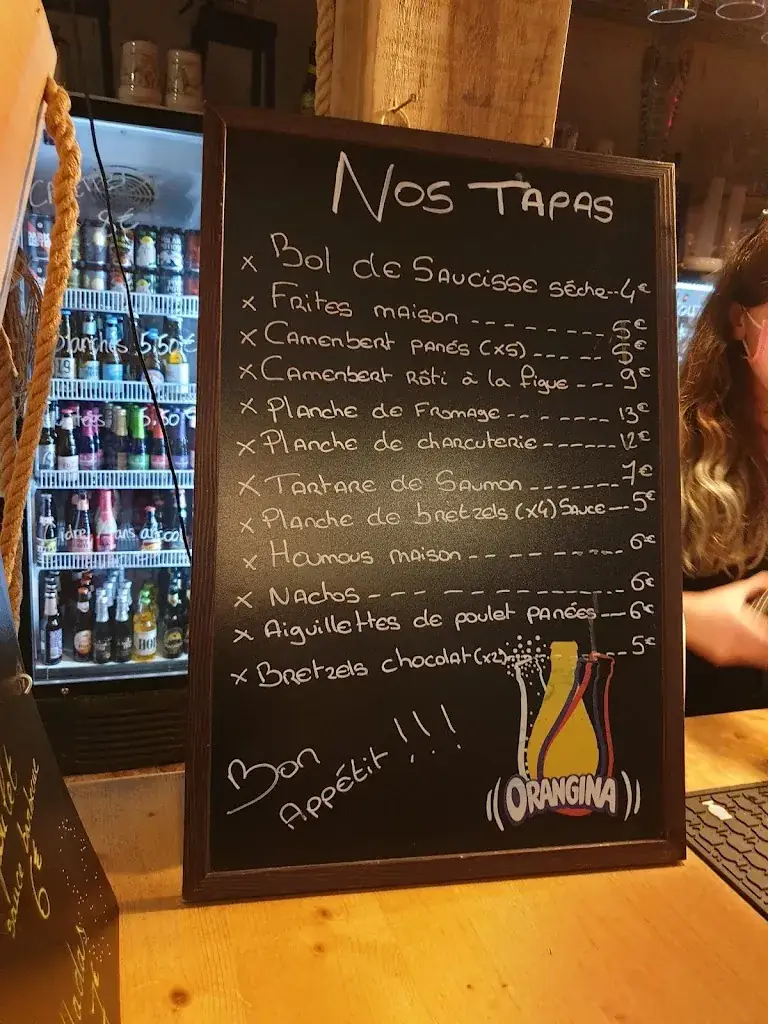 Nos Tapas
x Bol de Saucisse séche--4€
x Frites maison -------- 5€
x Camembert panés (x5) ---- 5€
x Camembert Rôti à la figue --- 9€
x Planche de Fromage ------- 13€
x Planche de charcuterie ------ 12€
x Tartare de Saumon ------- 7€
x Planche de bretzels (x4) Sauce -- 5€
x Houmous maison -------- 6€
x Nachos ------------ 6€
x Aiguillettes de poulet panées -- 6€
x Bretzels chocolat (x2)------ 5€
Bon
Appétit !!!
ORANGINA
5,50€
6€